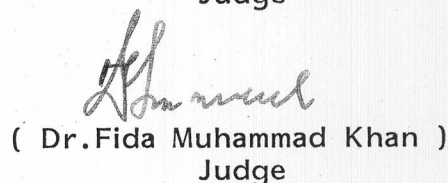 Judge
( Dr.Fida Muhammad Khan )
Judge